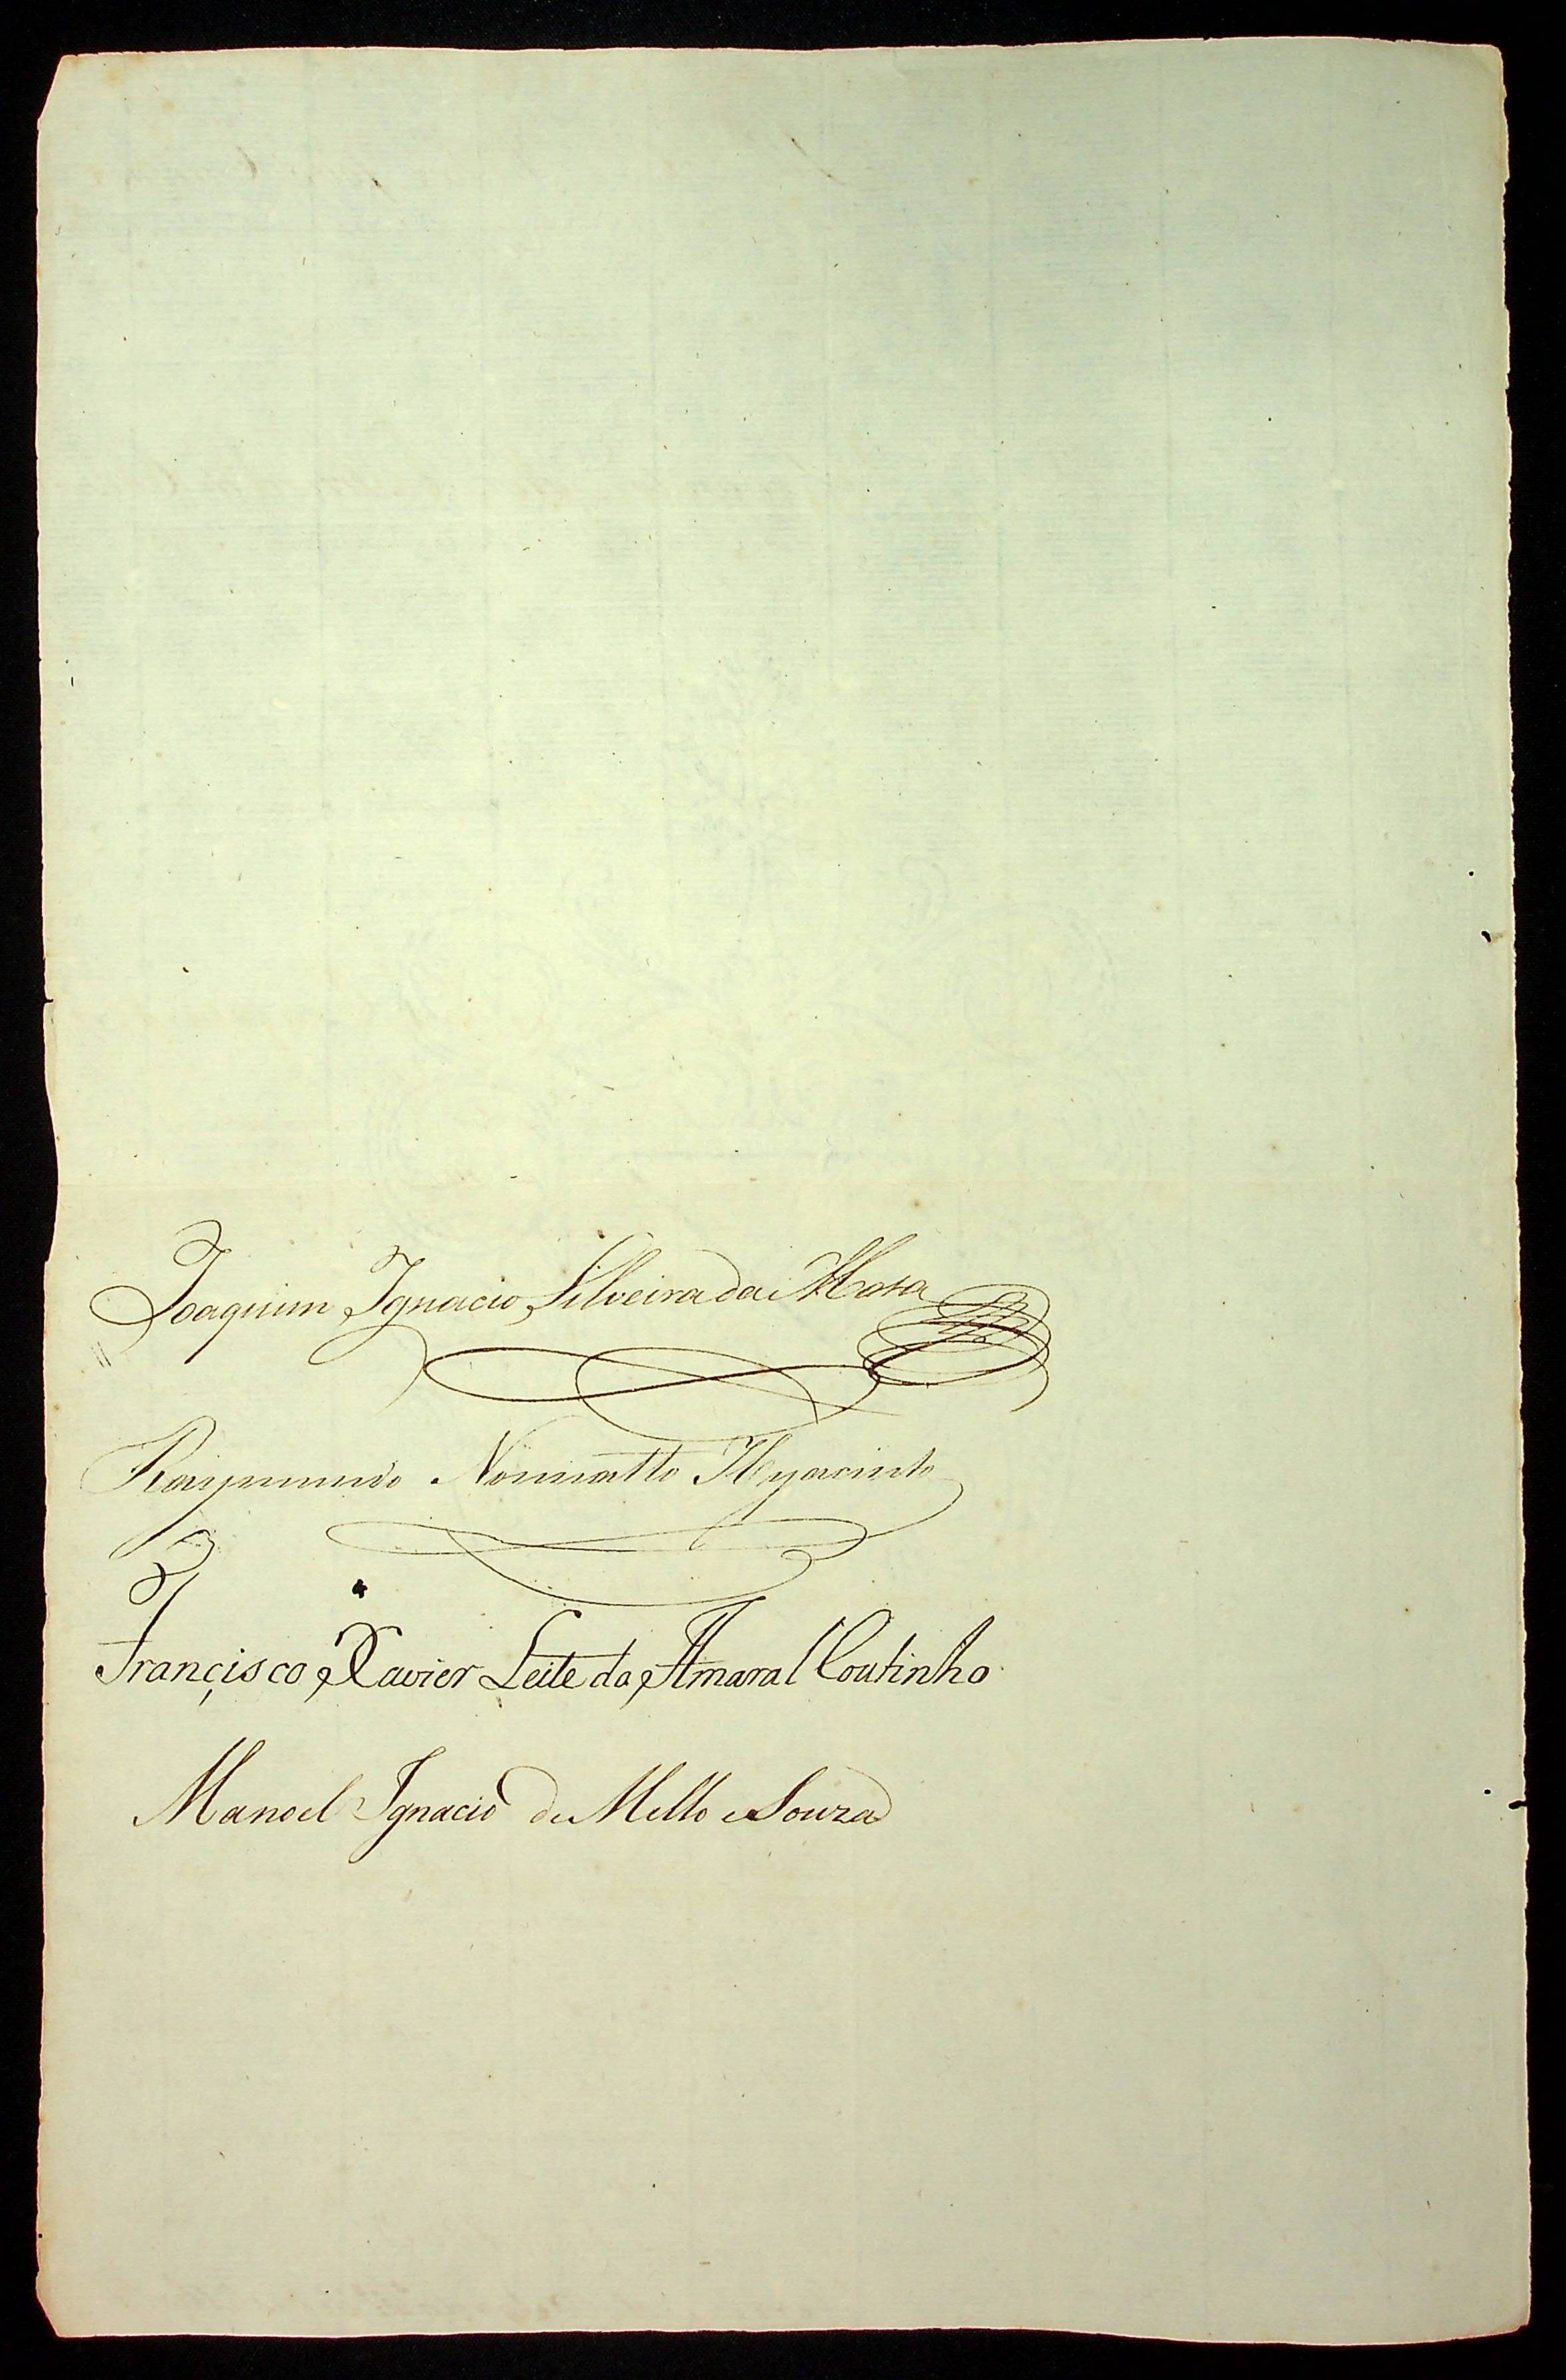 Joaquim Ignacio Silveira da Mota
Raymundo Nonnatto Hyacinto
Françisco Xavier Leite da Amaral Coutinho
Manoel Ignacio de Mello e Souza